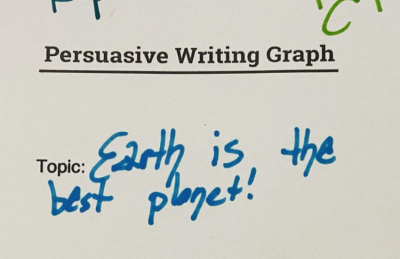 Persuasive Writing Graph
Topic: Earth is the
best planet!